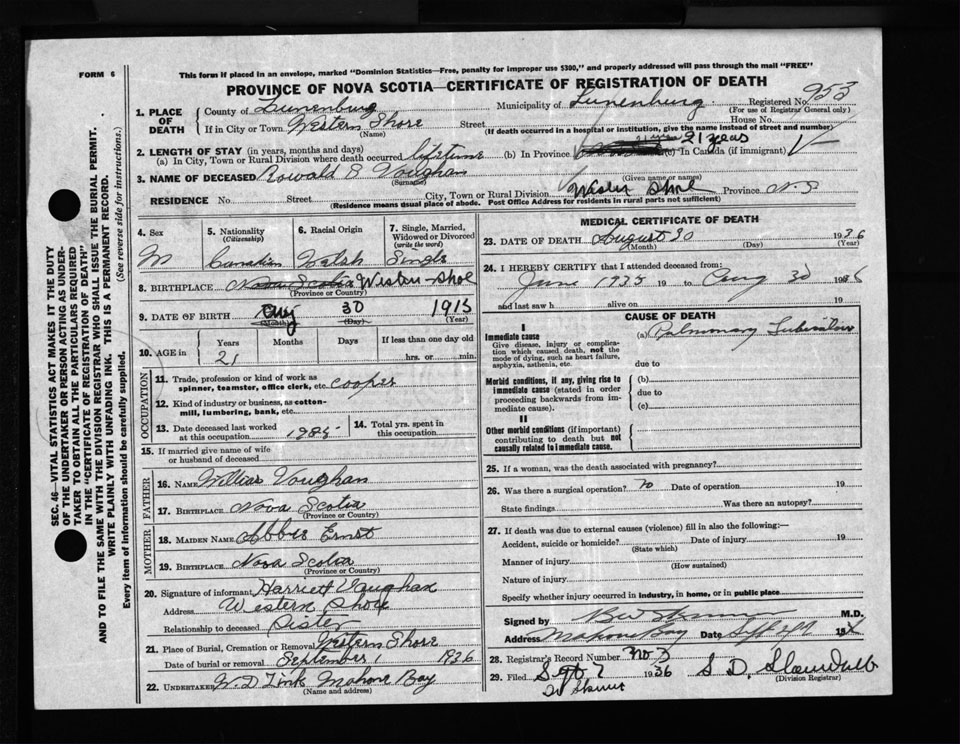 FORM 6
This form if placed in an envelope, marked "Dominion Statistics—Free, penalty for improper use $300," and properly addressed will pass through the mail "FREE"
PROVINCE OF NOVA SCOTIA—CERTIFICATE OF REGISTRATION OF DEATH
SEC. 46—VITAL STATISTICS ACT MAKES IT THE DUTY
OF THE UNDERTAKER OR PERSON ACTING AS UNDER-
TAKER TO OBTAIN ALL THE PARTICULARS REQUIRED
IN THE "CERTIFICATE OF REGISTRATION OF DEATH"
AND TO FILE THE SAME WITH THE DIVISION REGISTRAR WHO SHALL ISSUE THE BURIAL PERMIT.
WRITE PLAINLY WITH UNFADING INK. THIS IS A PERMANENT RECORD.
(See reverse side for instructions.)
Every item of information should be carefully supplied.
1. PLACE OF DEATH County of Lunenburg Municipality of Lunenburg Registered No. 953
(For use of Registrar General only)
If in City or Town Western Shore Street House No.
(Name) (If death occurred in a hospital or institution, give the name instead of street and number)
2. LENGTH OF STAY (in years, months and days) 21 years
(a) In City, Town or Rural Division where death occurred lifetime (b) In Province (c) In Canada (if immigrant)
3. NAME OF DECEASED Rowald S Vaughan
(Surname) (Given name or names)
RESIDENCE No. Street City, Town or Rural Division Western Shore Province N.S
(Residence means usual place of abode. Post Office Address for residents in rural parts not sufficient)
4. Sex 5. Nationality (Citizenship) 6. Racial Origin 7. Single, Married, Widowed or Divorced (write the word)
M Canadian Walsh Single
8. BIRTHPLACE Nova Scotia Western Shore
(Province or Country)
9. DATE OF BIRTH Aug 30 1915
(Month) (Day) (Year)
10. AGE in Years Months Days If less than one day old
21 hrs. or min.
OCCUPATION
11. Trade, profession or kind of work as spinner, teamster, office clerk, etc. cooper
12. Kind of industry or business, as cotton-mill, lumbering, bank, etc.
13. Date deceased last worked at this occupation 1935 14. Total yrs. spent in this occupation
15. If married give name of wife or husband of deceased
FATHER
16. Name Vaughan
17. Birthplace Nova Scotia
(Province or Country)
MOTHER
18. Maiden Name Ernst
19. Birthplace Nova Scotia
(Province or Country)
20. Signature of informant Harriett Vaughan
Address Western Shore
Relationship to deceased Sister
21. Place of Burial, Cremation or Removal Western Shore
Date of burial or removal September 1 1936
22. Undertaker W. D Zink Mahone Bay
(Name and address)
MEDICAL CERTIFICATE OF DEATH
23. DATE OF DEATH August 30 1936
(Month) (Day) (Year)
24. I HEREBY CERTIFY that I attended deceased from:
June 1935 19 to Aug 30 1936
and last saw h alive on 19
CAUSE OF DEATH
I
Immediate cause
Give disease, injury or complication which caused death, not the mode of dying, such as heart failure, asphyxia, asthenia, etc.
(a) Pulmonary
due to
Morbid conditions, if any, giving rise to immediate cause (stated in order proceeding backwards from immediate cause).
(b)
due to
(c)
II
Other morbid conditions (if important) contributing to death but not causally related to immediate cause.
25. If a woman, was the death associated with pregnancy?
26. Was there a surgical operation? no Date of operation 19
State findings Was there an autopsy?
27. If death was due to external causes (violence) fill in also the following:—
Accident, suicide or homicide? Date of injury 19
(State which)
Manner of injury
(How sustained)
Nature of injury
Specify whether injury occurred in industry, in home, or in public place
Signed by M.D.
Address Mahone Bay Date
28. Registrar's Record Number No 3
29. Filed Sept 1936 S D.
(Division Registrar)